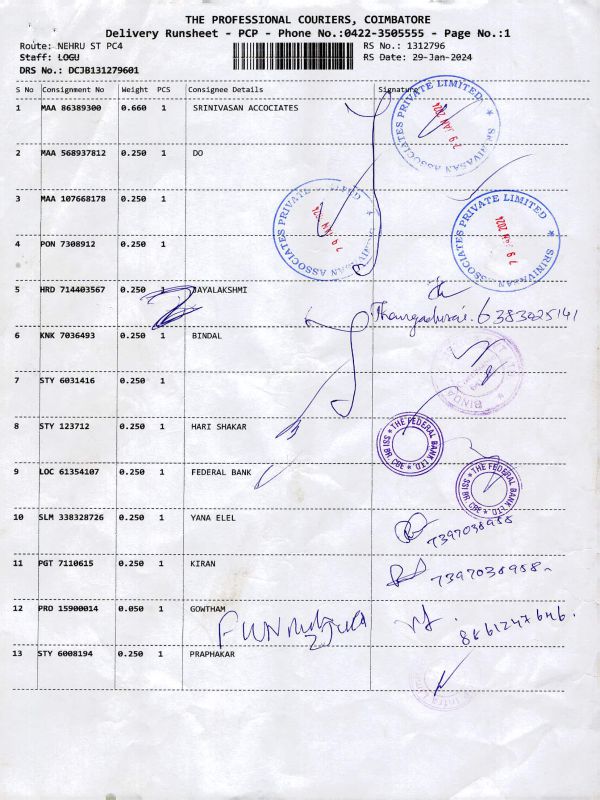 THE PROFESSIONAL COURIERS, COIMBATORE
Delivery Runsheet - PCP - Phone No.:0422-3505555 - Page No.:1
Route: NEHRU ST PC4 RS No.: 1312796
Staff: LOGU RS Date: 29-Jan-2024
DRS No.: DCJB131279601
S No Consignment No Weight PCS Consignee Details Signature
1 MAA 86389300 0.660 1 SRINIVASAN ACCOCIATES
SRINIVASAN ASSOCIATES PRIVATE LIMITED ★
29 JAN 2024
2 MAA 568937812 0.250 1 DO
3 MAA 107668178 0.250 1
SRINIVASAN ASSOCIATES PRIVATE LIMITED ★
29 JAN 2024
SRINIVASAN ASSOCIATES PRIVATE LIMITED ★
29 JAN 2024
4 PON 7308912 0.250 1
5 HRD 714403567 0.250 1 JAYALAKSHMI
6383025141
6 KNK 7036493 0.250 1 BINDAL
7 STY 6031416 0.250 1
8 STY 123712 0.250 1 HARI SHAKAR
★ THE FEDERAL BANK LTD. ★ SSI BR. CBE
9 LOC 61354107 0.250 1 FEDERAL BANK
★ THE FEDERAL BANK LTD. ★ SSI BR. CBE
10 SLM 338328726 0.250 1 YANA ELEL
7397038988
11 PGT 7110615 0.250 1 KIRAN
7397038988
12 PRO 15900014 0.050 1 GOWTHAM
8861247646.
13 STY 6008194 0.250 1 PRAPHAKAR